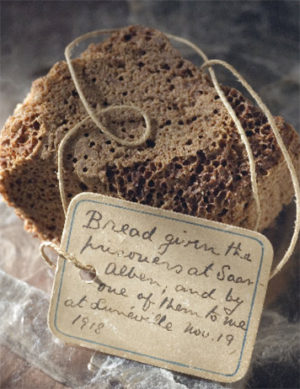 Bread given the
prisoners at Saar-
Alben; and by
one of them to me
at Lunéville Nov. 19,
1918